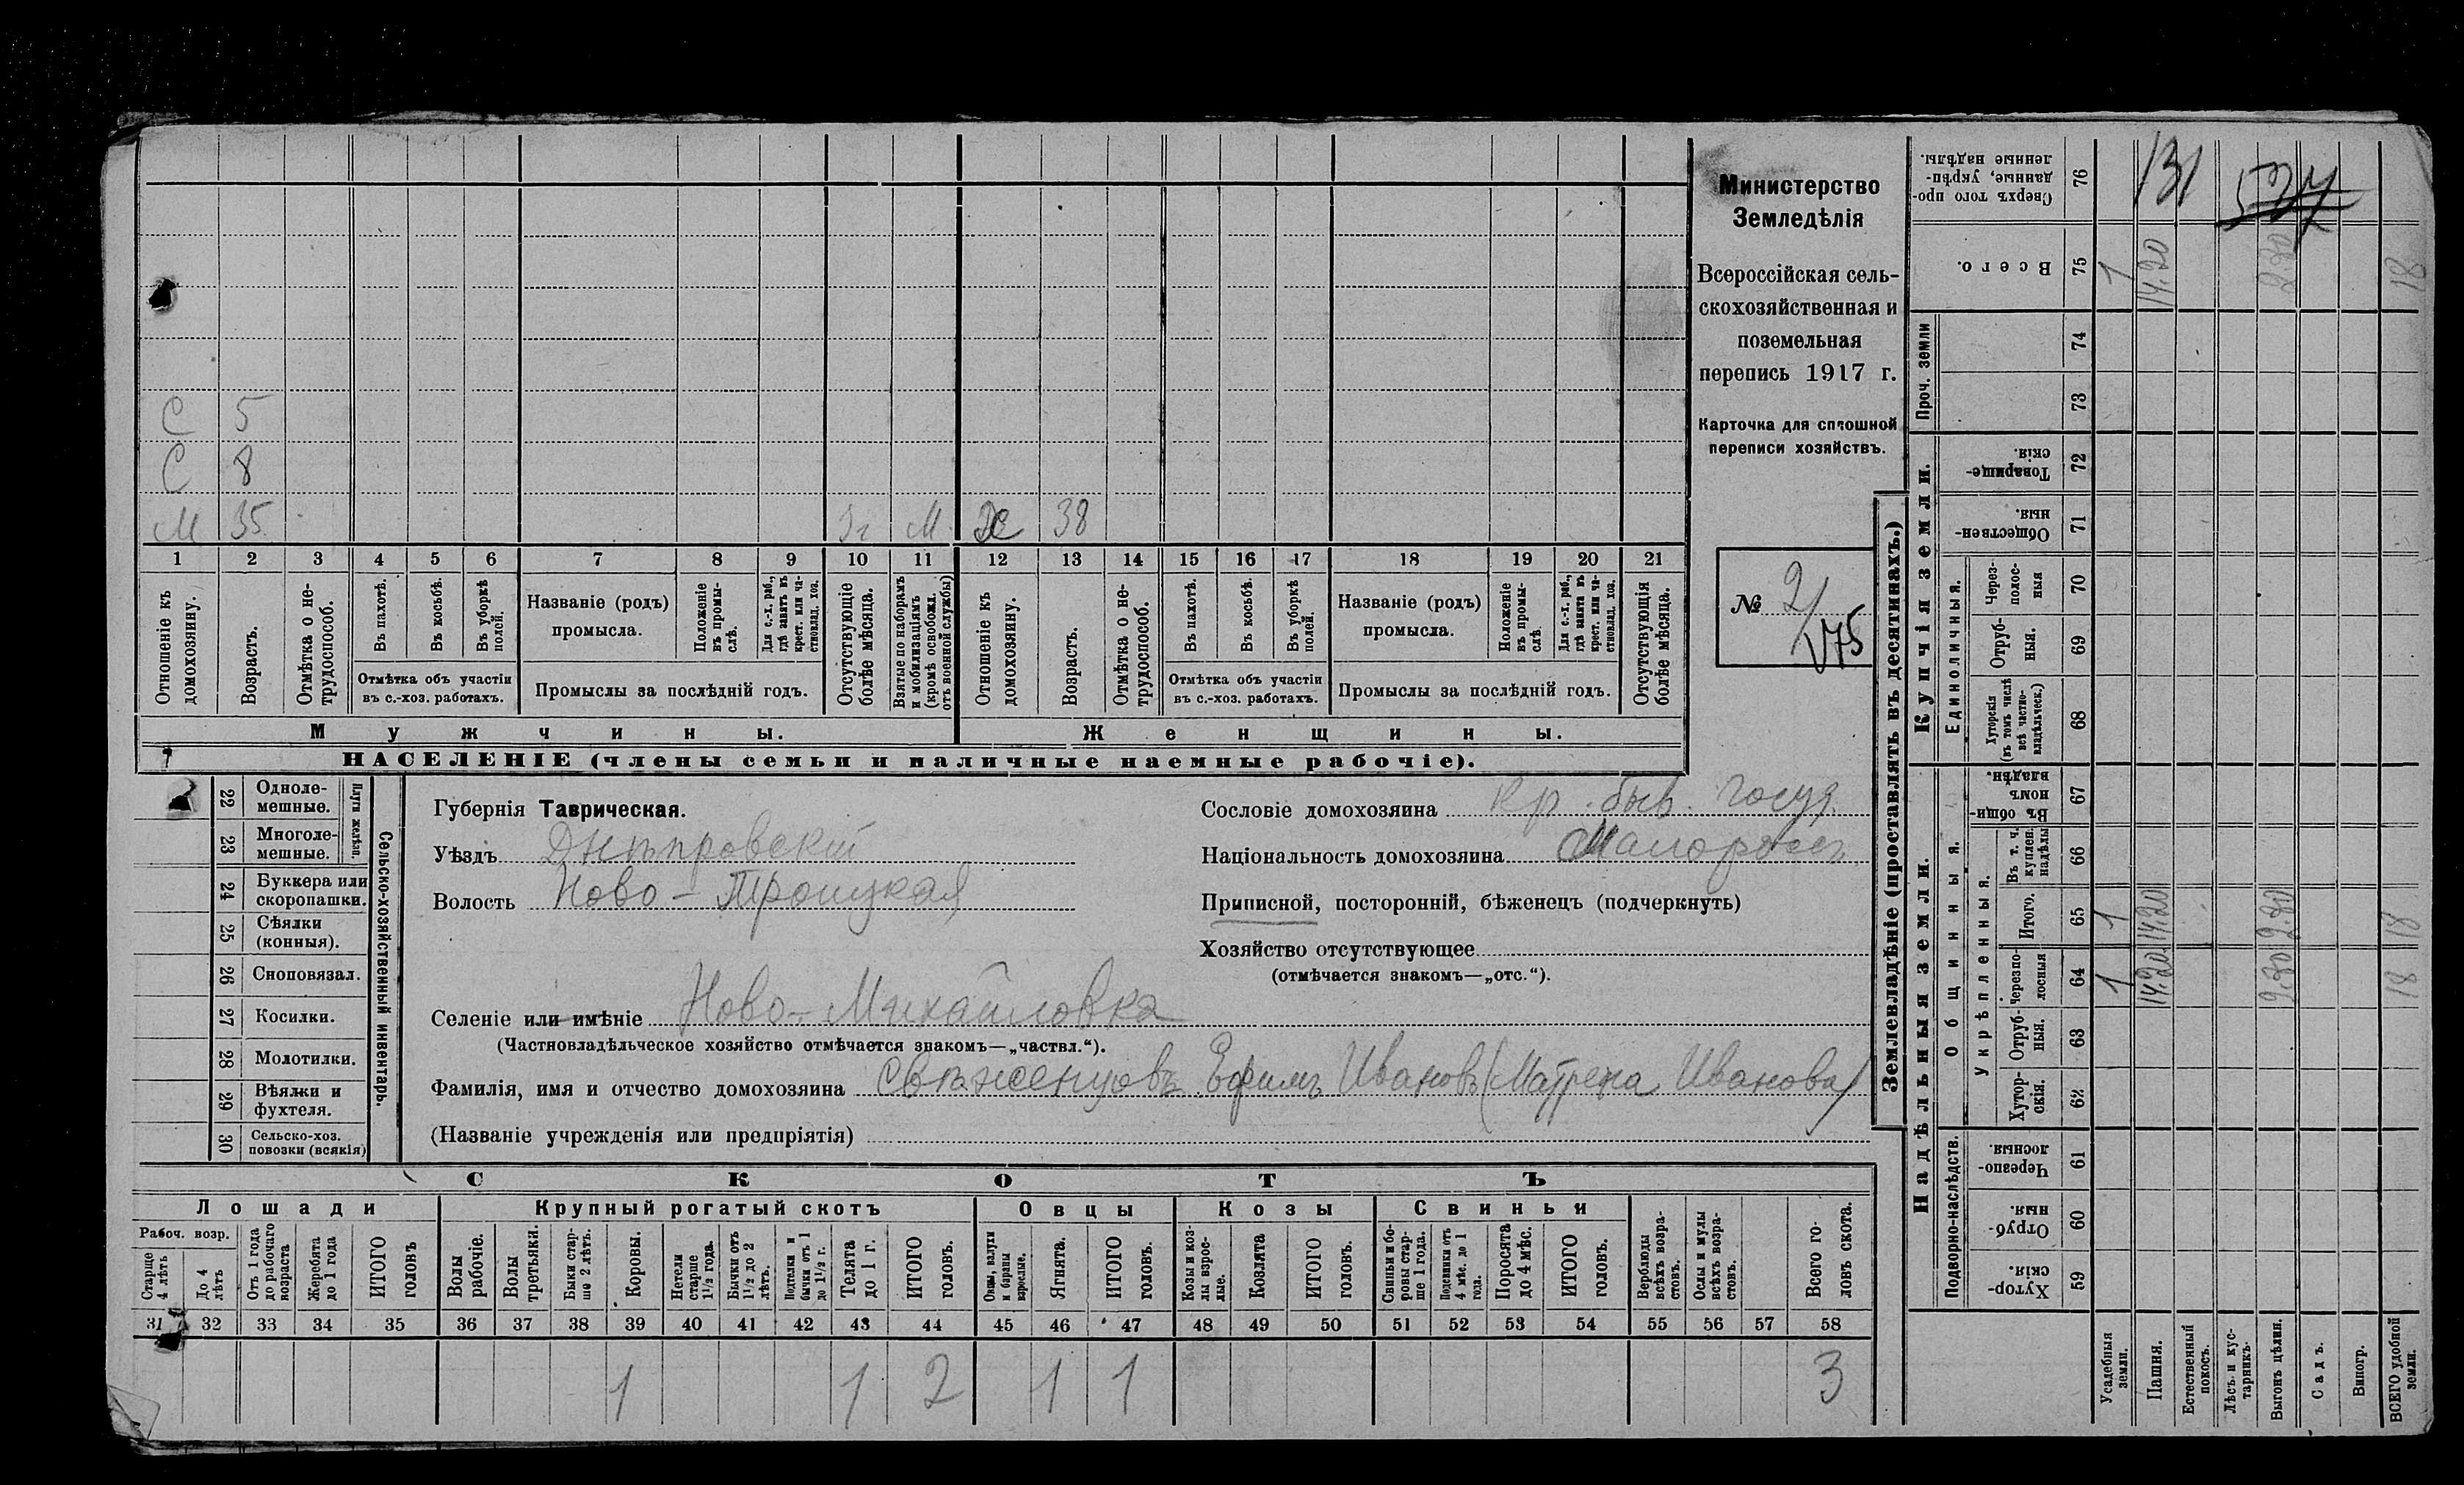 Министерство
Земледѣлія
Всероссійская сель-
скохозяйственная и
поземельная
перепись 1917 г.
Карточка для сплошной
переписи хозяйствъ.
№ 2/
175
С 5
С 8
М 35 3г М Ж 38
1 2 3 4 5 6 7 8 9 10 11 12 13 14 15 16 17 18 19 20 21
Отношеніе къ домохозяину.
Возрастъ.
Отмѣтка о не-
трудоспособ.
Въ пахотѣ.
Въ косьбѣ.
Въ уборкѣ полей.
Отмѣтка объ участіи
въ с.-хоз. работахъ.
Названіе (родъ)
промысла.
Положеніе въ промы-
слѣ.
Для с.-х. раб.,
гдѣ занятъ въ
крест. или ча-
стновлад. хоз.
Промыслы за послѣдній годъ.
Отсутствующіе
болѣе мѣсяца.
Взятые по наборамъ
и мобилизаціямъ
(кромѣ освобожд.
отъ военной службы)
Отношеніе къ
домохозяину.
Возрастъ.
Отмѣтка о не-
трудоспособ.
Въ пахотѣ.
Въ косьбѣ.
Въ уборкѣ
полей.
Отмѣтка объ участіи
въ с.-хоз. работахъ.
Названіе (родъ)
промысла.
Положеніе
въ промы-
слѣ.
Для с.-х. раб.,
гдѣ занята въ
крест. или ча-
стновлад. хоз.
Промыслы за послѣдній годъ.
Отсутствующія
болѣе мѣсяца.
Мужчины.
Женщины.
НАСЕЛЕНІЕ (члены семьи и наличные наемные рабочіе).
22 Одноле-
мешные.
23 Многоле-
мешные.
Плуги желѣз.
24 Буккера или
скоропашки.
25 Сѣялки
(конныя).
26 Сноповязал.
27 Косилки.
28 Молотилки.
29 Вѣялки и
фухтеля.
30 Сельско-хоз.
повозки (всякія)
Сельско-хозяйственный инвентарь.
Губернія Таврическая.
Уѣздъ Днѣпровскій
Волость Ново-Троицкая
Сословіе домохозяина Кр. быв. госуд.
Національность домохозяина Малоросъ
Приписной, посторонній, бѣженецъ (подчеркнуть)
Хозяйство отсутствующее
(отмѣчается знакомъ—„отс.“).
Селеніе или имѣніе Ново-Михайловка
(Частновладѣльческое хозяйство отмѣчается знакомъ—„частвл.“).
Фамилія, имя и отчество домохозяина Свѣженцовъ Ефимъ Ивановъ (Матрена Иванова)
(Названіе учрежденія или предпріятія)
СКОТЪ
Лошади
Крупный рогатый скотъ
Овцы
Козы
Свиньи
Рабоч. возр.
Старше
4 лѣтъ
До 4
лѣтъ
Отъ 1 года
до рабочаго
возраста
Жеребята
до 1 года
ИТОГО
головъ
Волы
рабочіе.
Волы
третьяки.
Быки стар-
ше 2 лѣтъ.
Коровы.
Нетели
старше
1½ года.
Бычки отъ
1½ до 2
лѣтъ.
Подтелки и
бычки отъ 1
до 1½ г.
Телята
до 1 г.
ИТОГО
головъ.
Овцы, валухи
и бараны
взрослые.
Ягнята.
ИТОГО
головъ.
Козы и коз-
лы взрос-
лые.
Козлята
ИТОГО
головъ.
Свиньи и бо-
ровы стар-
ше 1 года.
Подсвинки отъ
4 мѣс. до 1
года.
Поросята
до 4 мѣс.
ИТОГО
головъ.
Верблюды
всѣхъ возра-
стовъ.
Ослы и мулы
всѣхъ возра-
стовъ.
Всего го-
ловъ скота.
31 32 33 34 35 36 37 38 39 40 41 42 43 44 45 46 47 48 49 50 51 52 53 54 55 56 57 58
1 1 2 1 1 3
Землевладѣніе (проставлять въ десятинахъ.)
Надѣльныя земли.
Купчія земли.
Проч. земли
Подворно-наслѣдств.
Общинныя.
Укрѣпленныя.
Единоличныя.
Сверхъ того про-
данные, укрѣп-
ленные надѣлы. 76 131 537
Всего. 75 1 14.20 2.80 18
74
73
Товарище-
скія. 72
Обществен-
ныя. 71
Через-
полос-
ныя 70
Отруб-
ныя. 69
Хуторскія
(въ томъ числѣ
всѣ частно-
владѣльческ.) 68
Въ общи-
номъ
владѣн. 67
Въ т. ч.
куплен.
надѣлы 66
Итого. 65 1 14.20 2.80 18
Черезпо-
лосныя 64 1 14.20 2.80 18
Отруб-
ныя. 63
Хутор-
скія. 62
Черезпо-
лосныя. 61
Отруб-
ныя. 60
Хутор-
скія. 59
Усадебныя
земли.
Пашня.
Естественный
покосъ.
Лѣсъ и кус-
тарникъ.
Выгонъ цѣлин.
Садъ.
Виногр.
ВСЕГО удобной
земли.